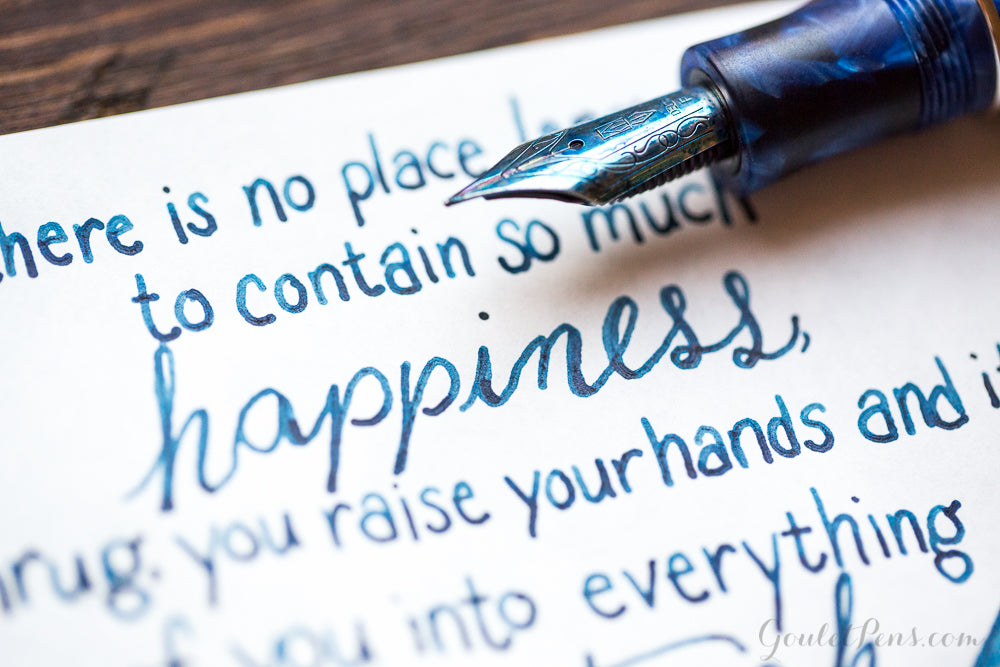 here is no place
to contain so much
happiness,
hrug, you raise your hands and it
of you into everything
GouletPens.com